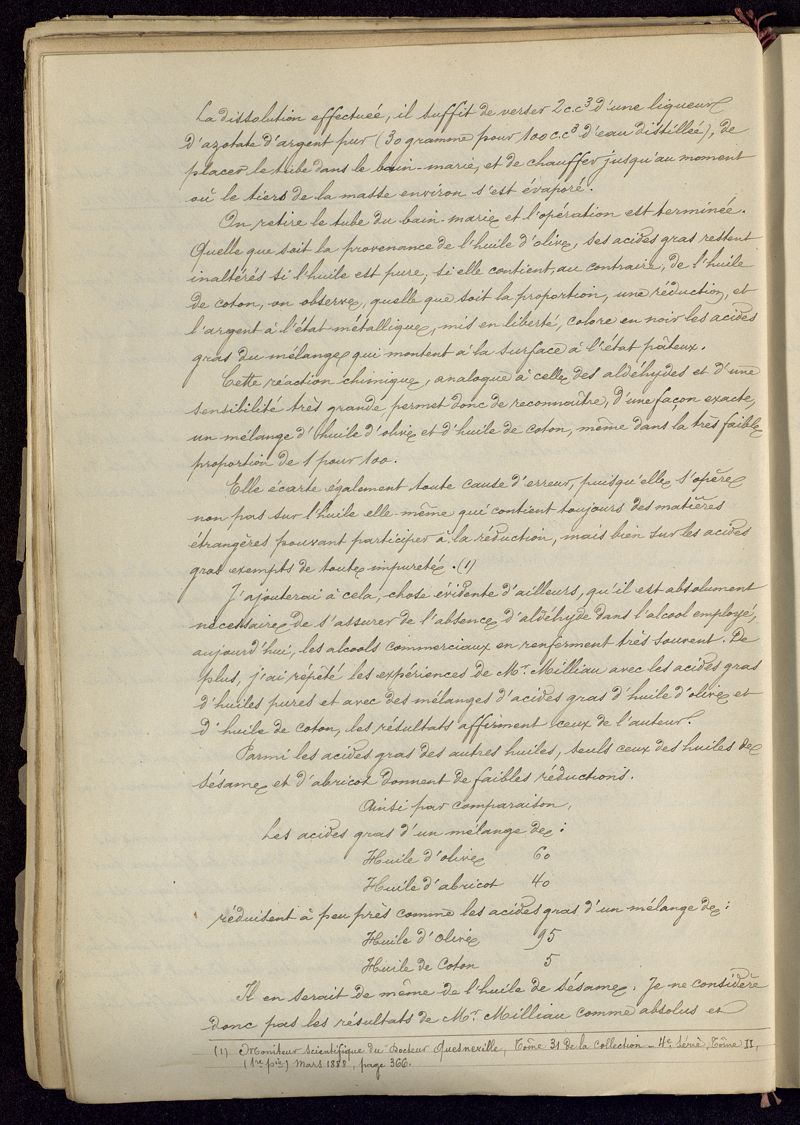 La dissolution effectuée, il suffit de verser 2 c.c³ d'une liqueur
d'azotate d'argent pur (30 gramme pour 100 c.c³ d'eau distillée), de
placer le tube dans le bain-marie, et de chauffer jusqu'au moment
où le tiers de la masse environ s'est évaporé.
On retire le tube du bain-marie et l'opération est terminée.
Quelle que soit la provenance de l'huile d'olive, ses acides gras restent
inaltérés si l'huile est pure, si elle contient, au contraire, de l'huile
de coton, on observe, quelle que soit la proportion, une réduction, et
l'argent à l'état métallique, mis en liberté, colore en noir les acides
gras du mélange qui montent à la surface à l'état pâteux.
Cette réaction chimique, analogue à celle des aldéhydes et d'une
sensibilité très grande, permet donc de reconnaître, d'une façon exacte,
un mélange d'huile d'olive et d'huile de coton, même dans la très faible
proportion de 1 pour 100.
Elle écarte également toute cause d'erreur, puisqu'elle s'opère
non pas sur l'huile elle-même qui contient toujours des matières
étrangères pouvant participer à la réduction, mais bien sur les acides
gras exempts de toute impureté. (1)
J'ajouterai à cela, chose évidente d'ailleurs, qu'il est absolument
nécessaire de s'assurer de l'absence d'aldéhyde dans l'alcool employé,
aujourd'hui, les alcools commerciaux en renferment très souvent. De
plus, j'ai répété les expériences de Mr. Milliau avec les acides gras
d'huiles pures et avec des mélanges d'acides gras d'huile d'olive et
d'huile de coton, les résultats affirment ceux de l'auteur.
Parmi les acides gras des autres huiles, seuls ceux des huiles de
sésame et d'abricot donnent de faibles réductions.
Ainsi par comparaison,
Les acides gras d'un mélange de :
Huile d'olive 60
Huile d'abricot 40
réduisent à peu près comme les acides gras d'un mélange de :
Huile d'olive 95
Huile de coton 5
Il en serait de même de l'huile de sésame. Je ne considère
donc pas les résultats de Mr. Milliau comme absolus et
(1) Moniteur scientifique du Docteur Quesneville, Tôme 31 de la collection - 4e série, Tôme II,
(1re pie) Mars 1888, page 366.